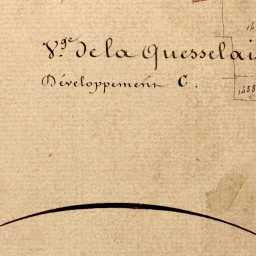 V.ge De la Quesselai
Développement C.